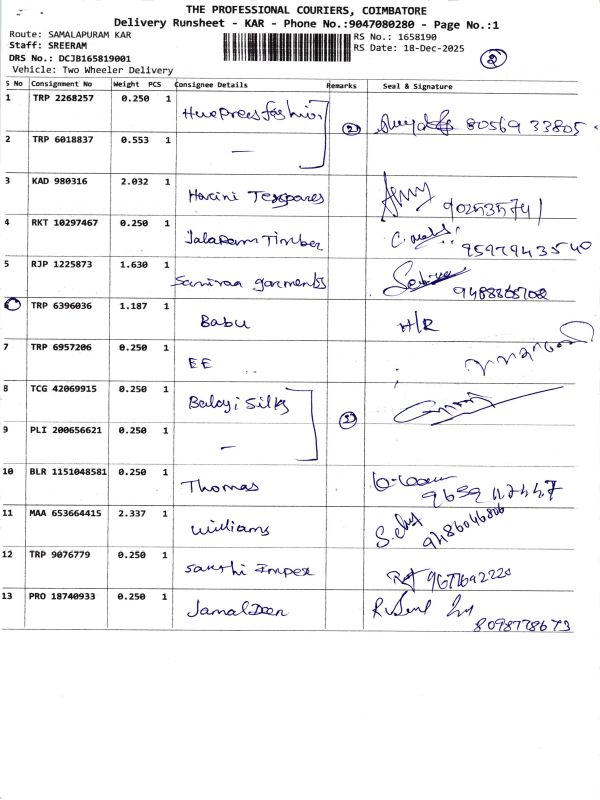 THE PROFESSIONAL COURIERS, COIMBATORE
Delivery Runsheet - KAR - Phone No.:9047080280 - Page No.:1
Route: SAMALAPURAM KAR
RS No.: 1658190
Staff: SREERAM
RS Date: 18-Dec-2025
2
DRS No.: DCJB165819001
Vehicle: Two Wheeler Delivery
S No Consignment No Weight PCS Consignee Details Remarks Seal & Signature
1 TRP 2268257 0.250 1
2 80569 33805
2 TRP 6018837 0.553 1 —
3 KAD 980316 2.032 1 Harini
4 RKT 10297467 0.250 1 Jalaram Timber 9597943540
5 RJP 1225873 1.630 1 garments
6 TRP 6396036 1.187 1 Babu H/R
7 TRP 6957206 0.250 1 EE
8 TCG 42069915 0.250 1 Balaji Silks
2
9 PLI 200656621 0.250 1 —
10 BLR 1151048581 0.250 1 Thomas
11 MAA 653664415 2.337 1 Williams
12 TRP 9076779 0.250 1 Sakthi Impex
13 PRO 18740933 0.250 1 JamalDeen
8098778673